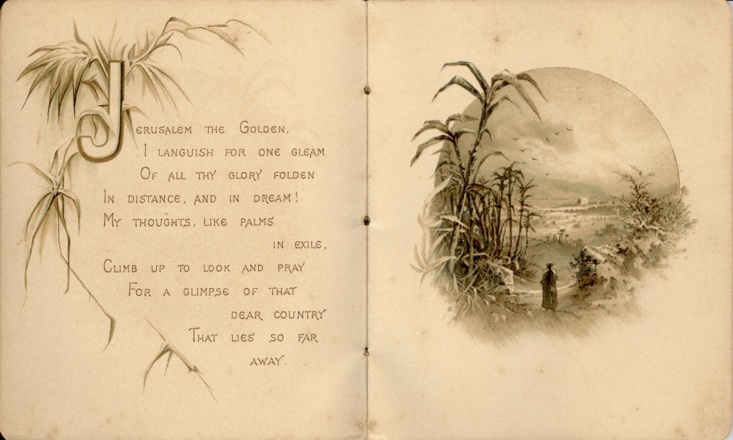 Jerusalem the Golden,
I languish for one gleam
Of all thy glory folden
In distance, and in dream!
My thoughts, like palms
in exile,
Climb up to look and pray
For a glimpse of that
dear country
That lies so far
away.